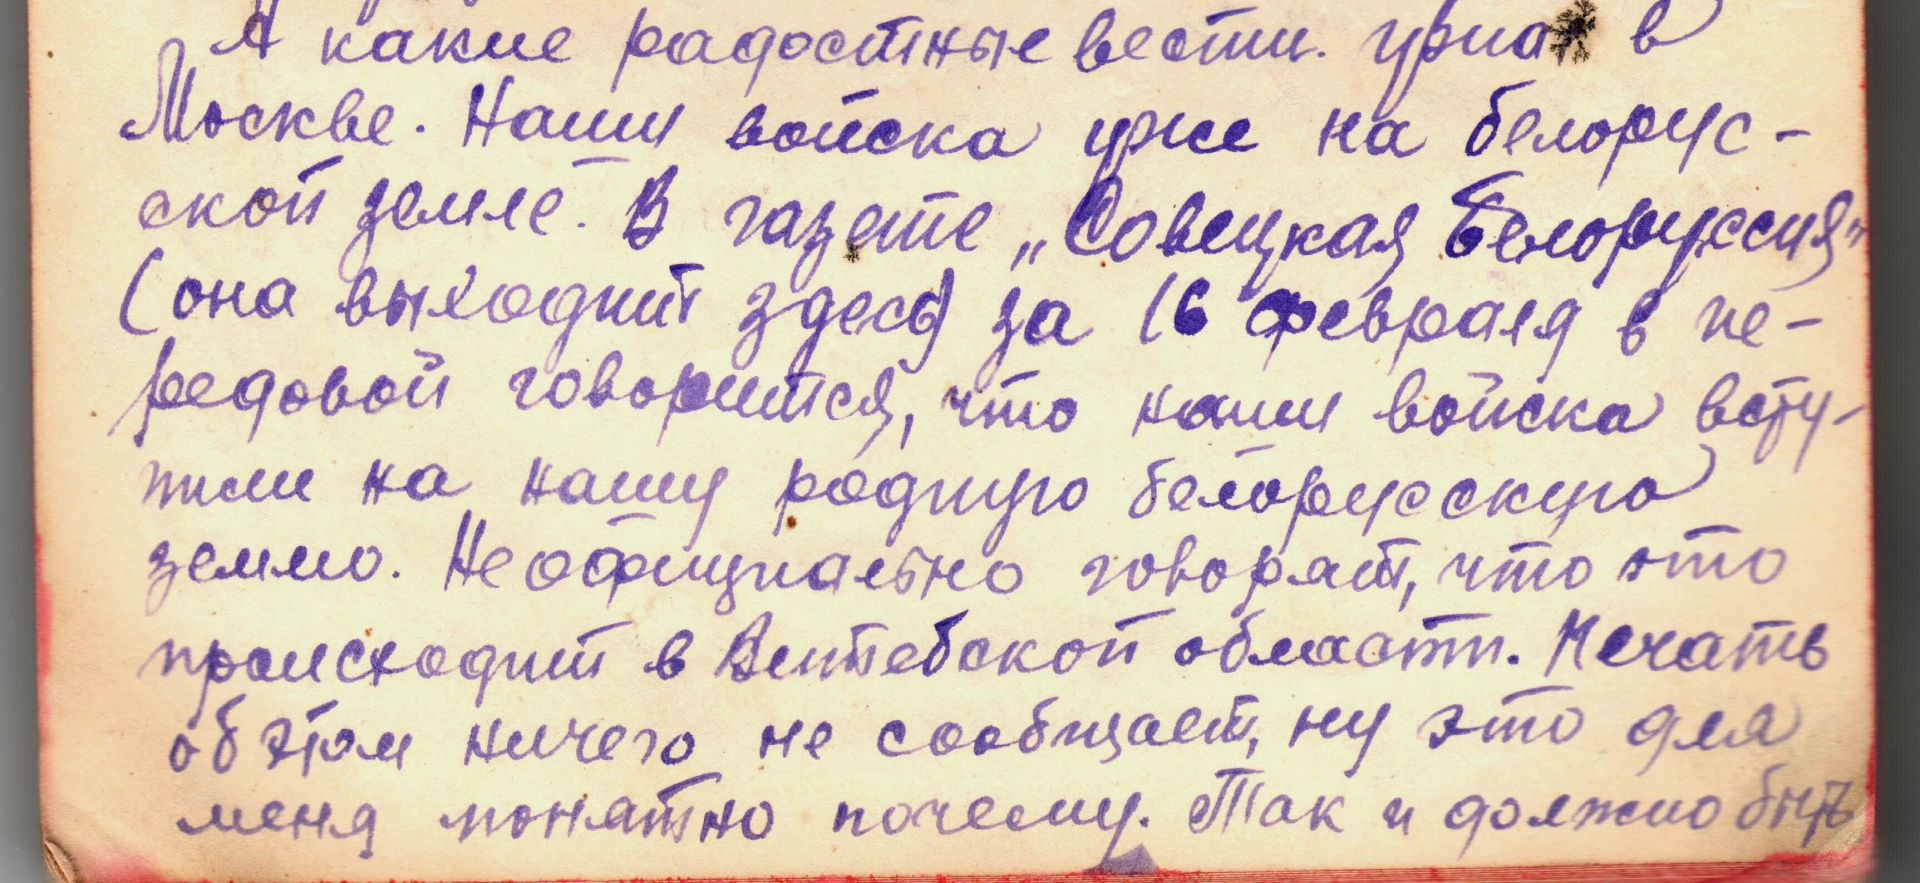 А какие радостные вести узнал в
Москве. Наши войска уже на белорус-
ской земле. В газете „Совецкая Белоруссия"
(она выходит здесь) за 16 февраля в пе-
редовой говорится, что наши войска всту-
пили на нашу родную белорусскую
землю. Неофициально говорят, что это
происходит в Витебской области. Печать
об этом ничего не сообщает, ну это для
меня понятно почему. Так и должно быть